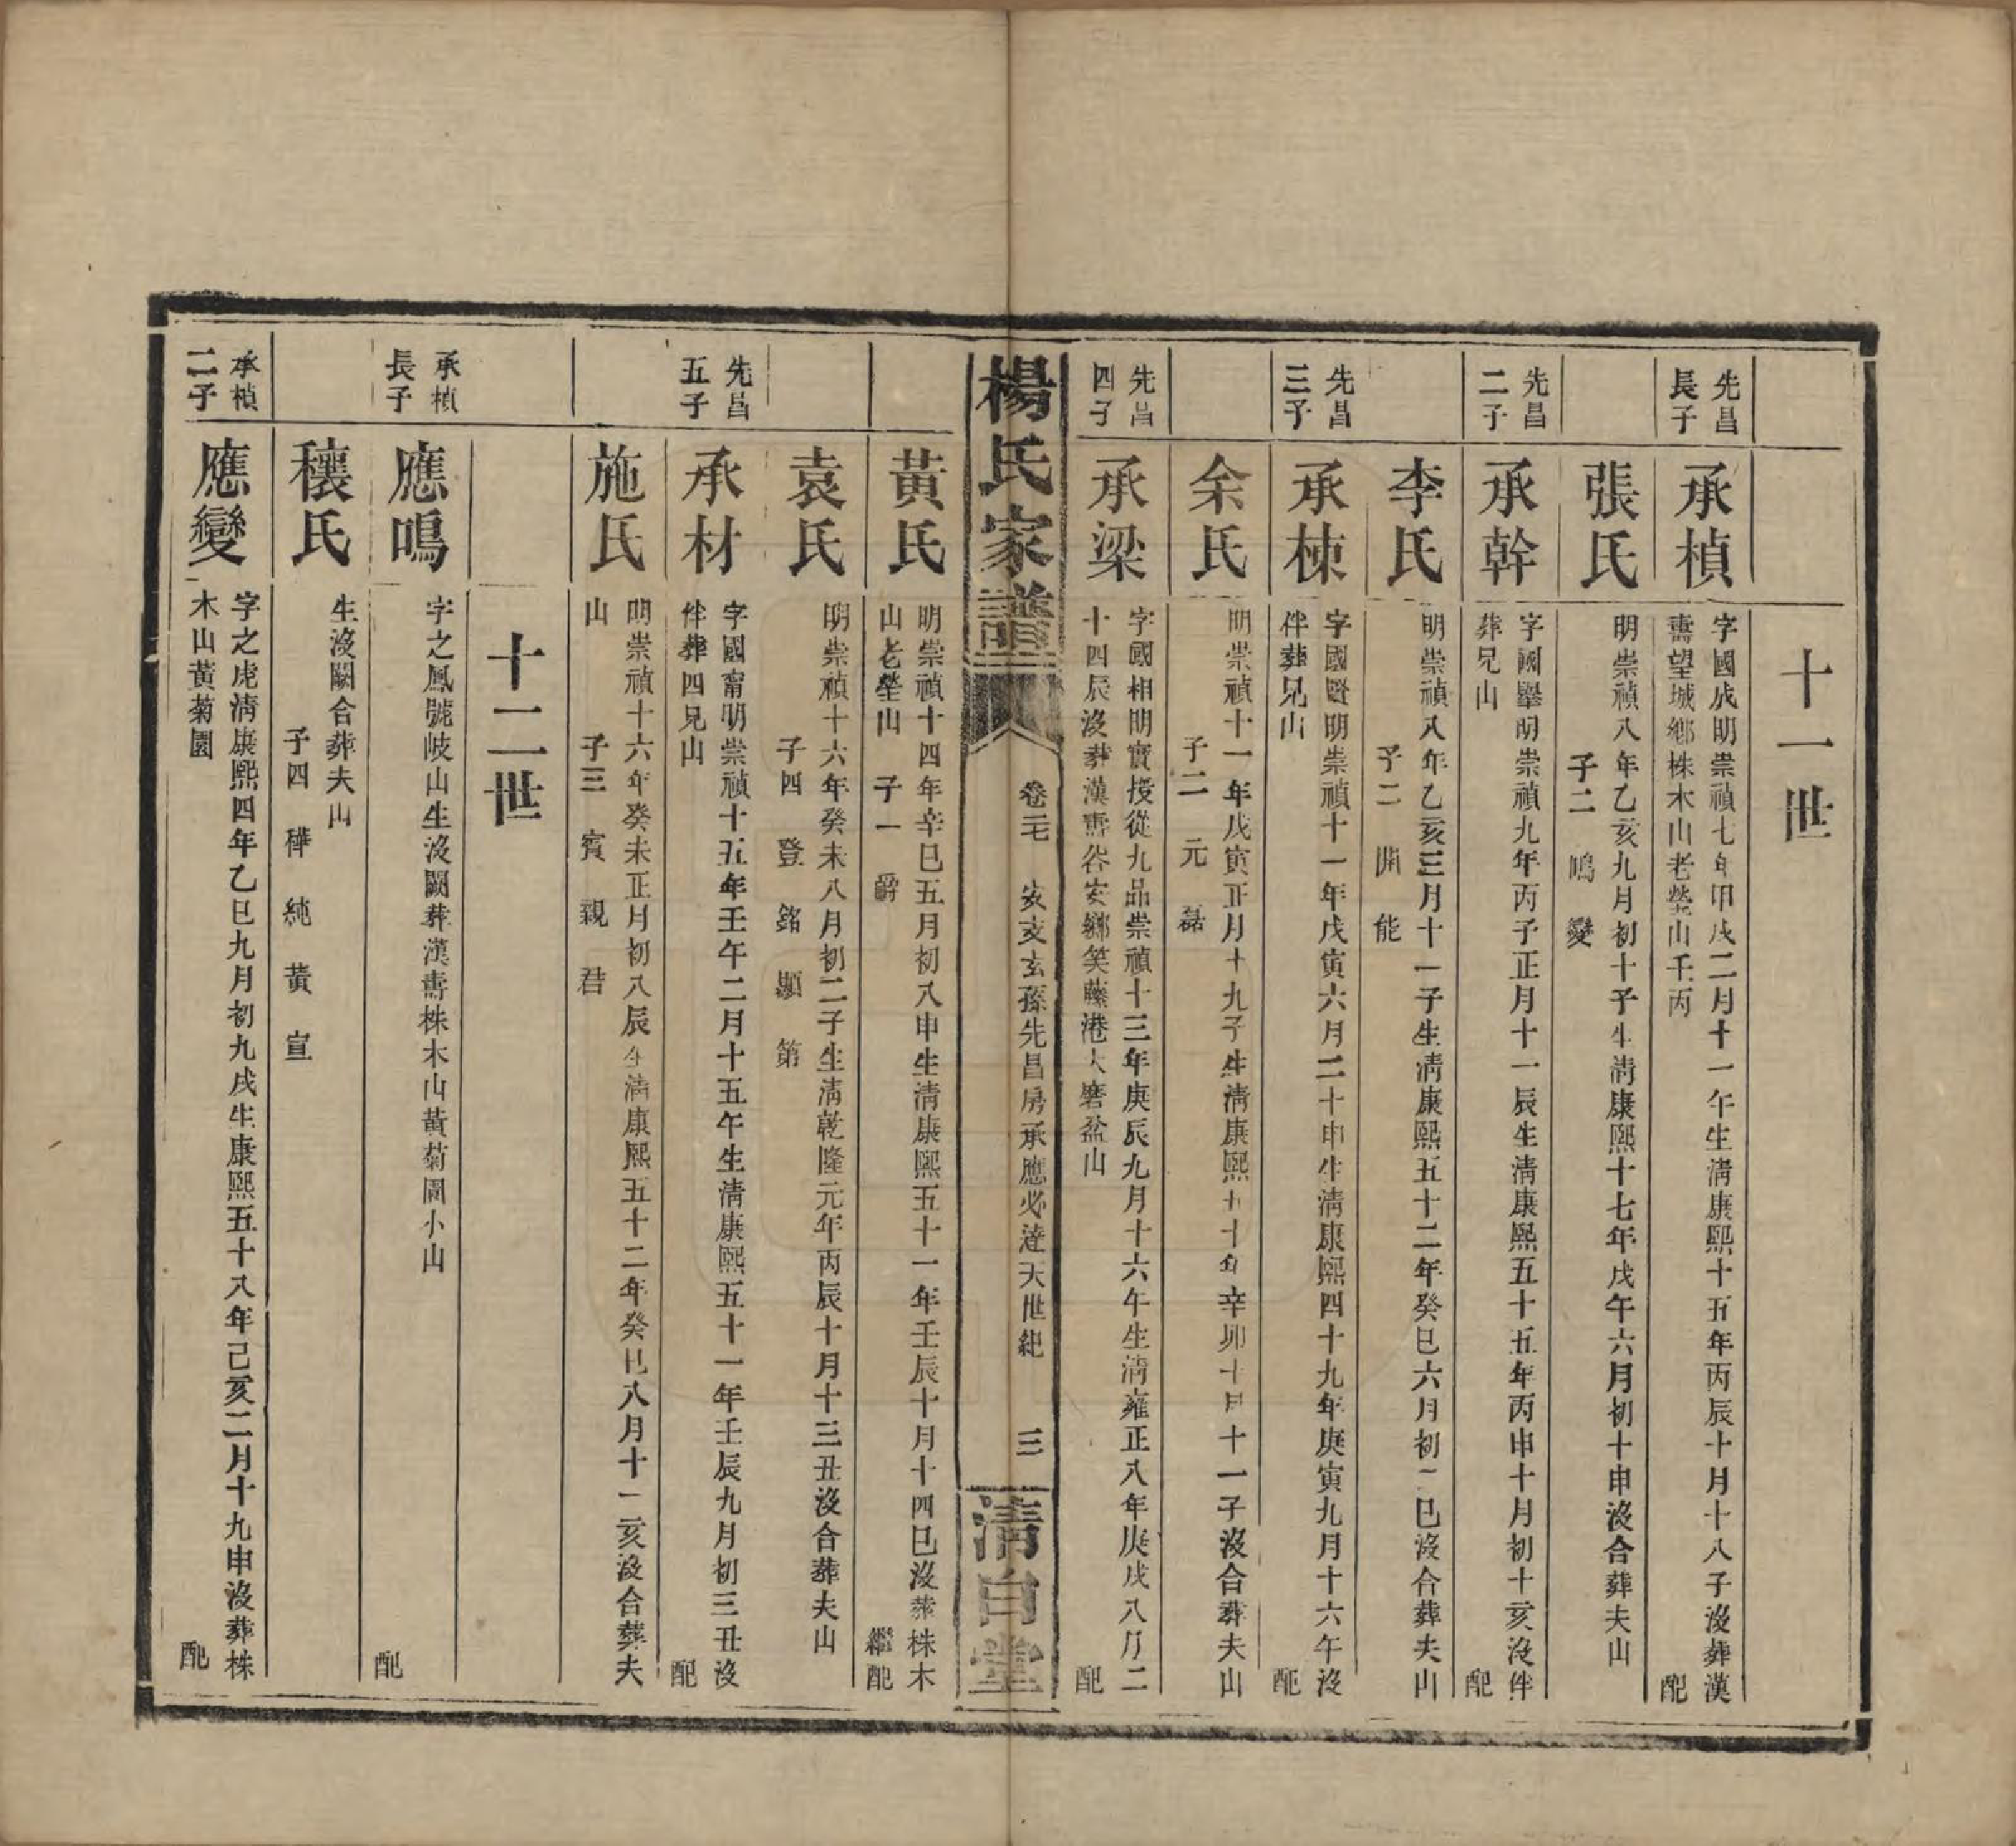 十一世
先昌
長子
承楨
字國成明崇禎七年甲戌二月十一午生淸康熙十五年丙辰十月十八子沒葬漢
壽望城鄉株木山老塋山壬丙
配
張氏
明崇禎八年乙亥九月初十子生淸康熙十七年戊午六月初十申沒合葬夫山
子二 鳴 變
先昌
二子
承幹
字國舉明崇禎九年丙子正月十一辰生淸康熙五十五年丙申十月初十亥沒伴
葬兄山
配
李氏
明崇禎八年乙亥三月十一子生淸康熙五十二年癸巳六月初二巳沒合葬夫山
子二 開 能
先昌
三子
承棟
字國賢明崇禎十一年戊寅六月二十申生淸康熙四十九年庚寅九月十六午沒
伴葬兄山
配
余氏
明崇禎十一年戊寅正月十九子生淸康熙五十年辛卯十月十一子沒合葬夫山
子二 元 磊
先昌
四子
承梁
字國相明實授從九品崇禎十三年庚辰九月十六午生淸雍正八年庚戌八月二
十四辰沒葬漢壽谷安鄉笑藤港大磨盆山
配
楊氏家譜
卷二七 安支玄孫先昌房承應必達天世紀 三
淸白堂
黃氏
明崇禎十四年辛巳五月初八申生淸康熙五十一年壬辰十月十四巳沒葬株木
山老塋山 子一 爵
繼配
袁氏
明崇禎十六年癸未八月初二子生淸乾隆元年丙辰十月十三丑沒合葬夫山
子四 登 銘 顯 第
先昌
五子
承材
字國甯明崇禎十五年壬午二月十五午生淸康熙五十一年壬辰九月初三丑沒
伴葬四兄山
配
施氏
明崇禎十六年癸未正月初八辰生淸康熙五十二年癸巳八月十二亥沒合葬夫
山 子三 賓 親 君
十二世
承楨
長子
應鳴
字之鳳號岐山生沒闕葬漢壽株木山黃菊園小山
配
穰氏
生沒闕合葬夫山
子四 禪 純 黃 宣
承楨
二子
應變
字之虎淸康熙四年乙巳九月初九戌生康熙五十八年己亥二月十九申沒葬株
木山黃菊園
配